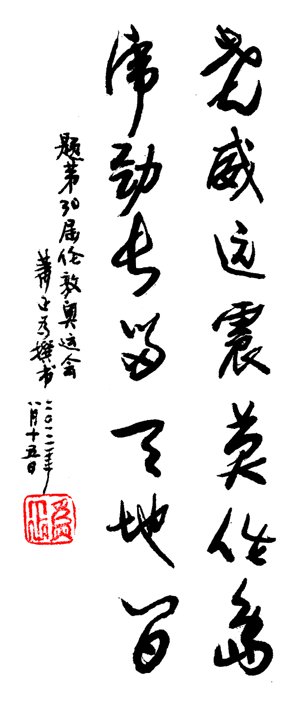 威远震英伦岛
劲长留天地间
题第30届伦敦奥运会
撰书
二〇一二年
八月十五日